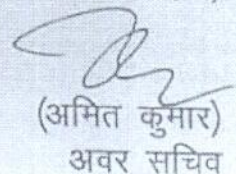 (अमित कुमार)
अवर सचिव